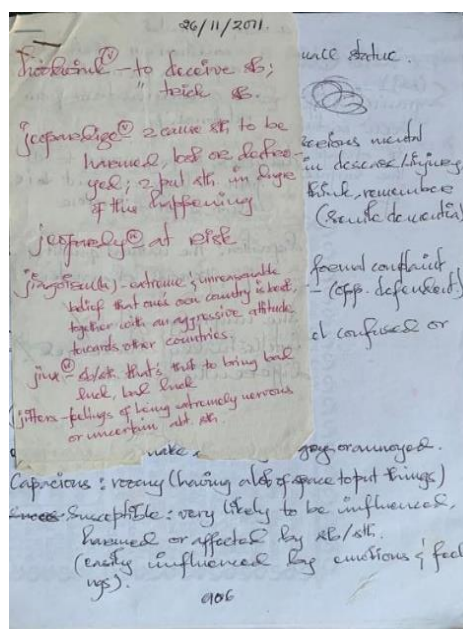 26/11/2011.
hoodwink (v) - to deceive sb;
" trick sb.
jeopardize (v) 2 cause sth to be
harmed, lost or destro-
yed; 2 put sth. in dange
of this happening
jeopardy (n) at risk
jingoism (n) - extreme & unreasonable
belief that one's own country is best,
together with an aggressive attitude
towards other countries
jinx (n) - sb/sth. that's to bring bad
luck, bad luck
jitters - feelings of being extremely nervous
or uncertain abt. sth.
statue.
serious mental
think, remember
(senile dementia)
formal complaint
- (opp. defendent)
confused or
make
or annoyed.
Capacious : roomy (having a lot of space to put things)
Susceptible : very likely to be influenced,
harmed or affected by sb/sth.
(easily influenced by emotions & feel
ngs).